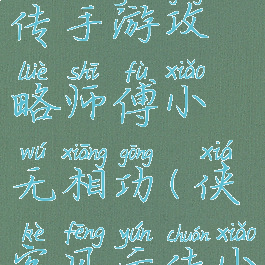 传手游攻
lüè shī fù xiǎo
略师傅小
wú xiāng gōng xiá
无相功(侠
kè fēng yún chuán xiǎo
客风云传小